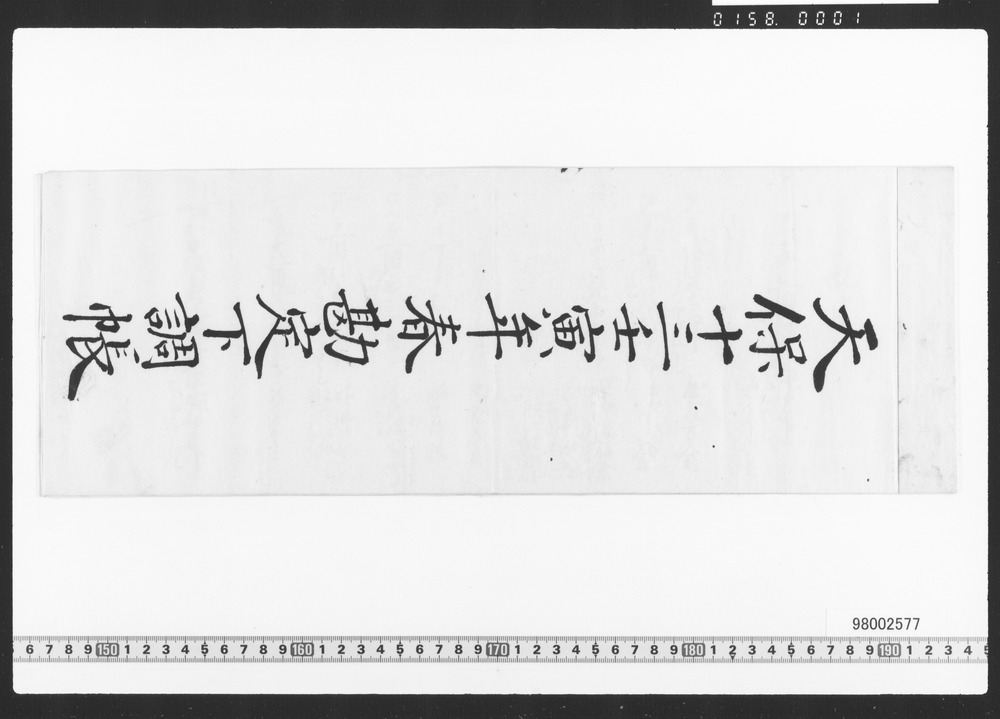 0158. 0001
天保十三壬寅年春勘定下調帳
98002577
6 7 8 9 150 1 2 3 4 5 6 7 8 9 160 1 2 3 4 5 6 7 8 9 170 1 2 3 4 5 6 7 8 9 180 1 2 3 4 5 6 7 8 9 190 1 2 3 4